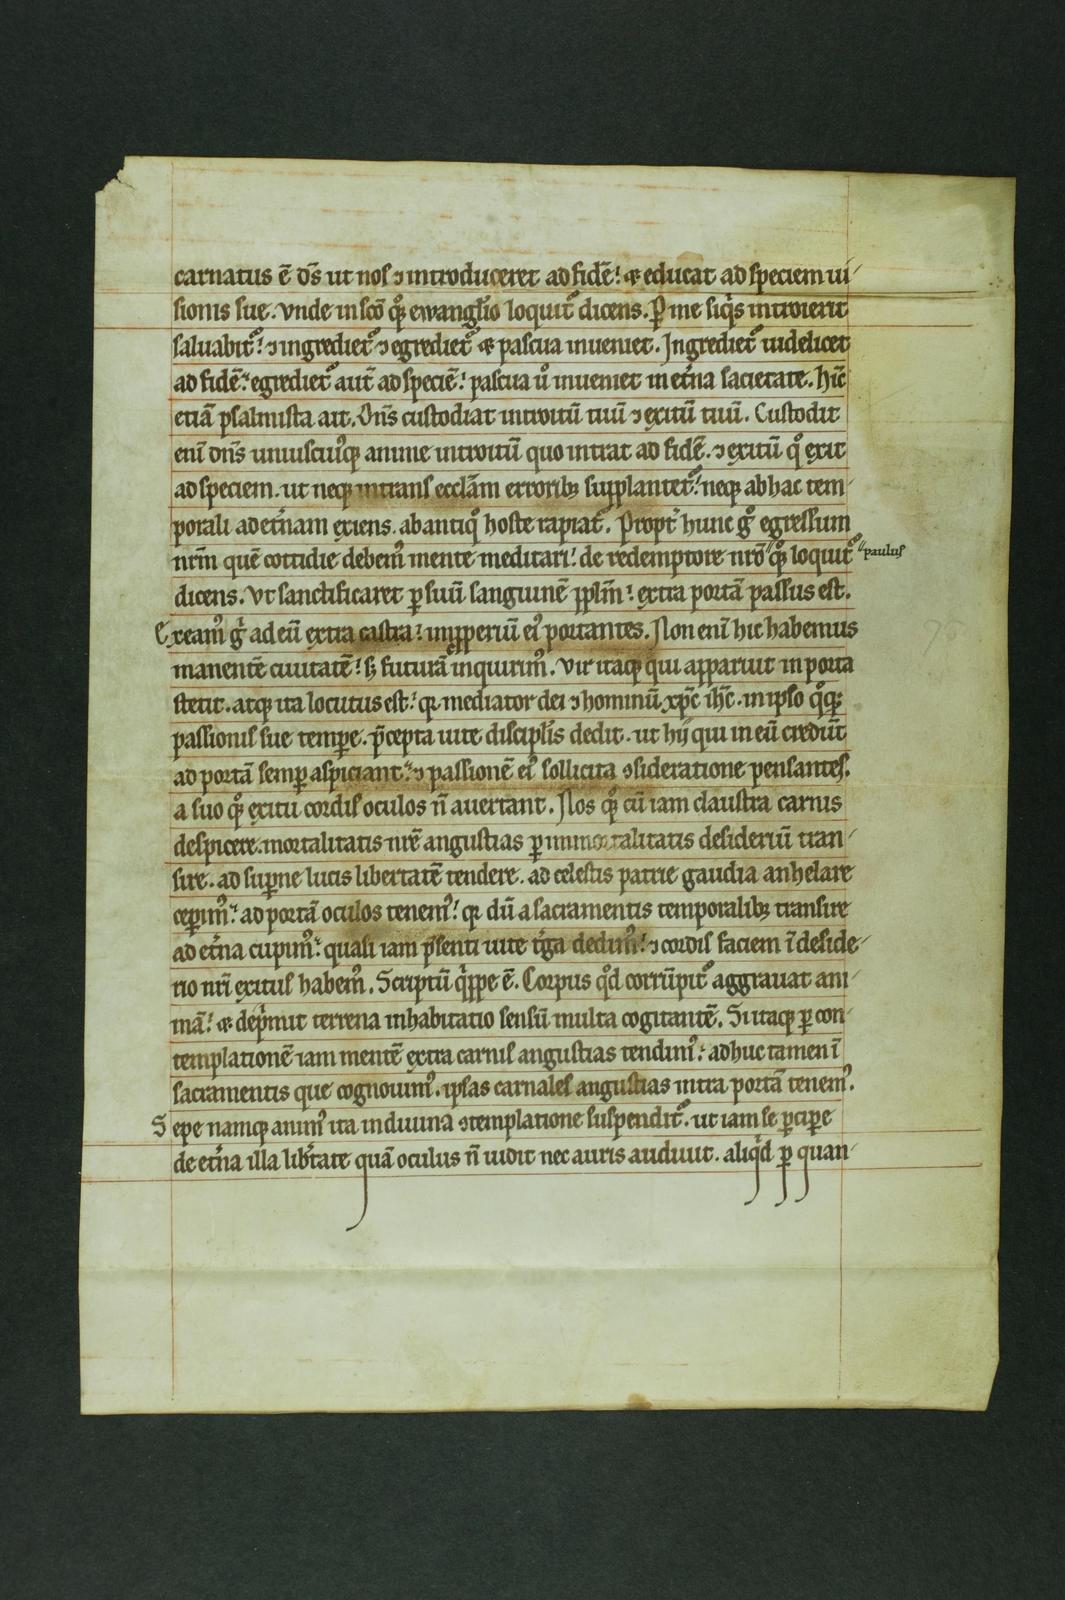 carnatus ē d̄s ut nos ⁊ introduceret ad fidē. & educat ad speciem ui
sionis sue. Vnde in sc̄o qͦꝫ ewangl̄io loquitᷣ dicens. Ꝑ me siq̇s introierit
saluabitᷣ. ⁊ ingredietᷣ ⁊ egredietᷣ & pascua inueniet. Ingredietᷣ uidelicet
ad fidē. egredietᷣ aut̄ ad speciē. pascua u̇ inueniet in et̄na sacietate. hīc
etiā psalmista ait. Dn̄s custodiat introitū tuū ⁊ exitū tuū. Custodit
eni dn̄s uniuscuiꝰqꝫ anime introitū quo intrat ad fidē. ⁊ exitū qͦ exit
ad speciem. ut neqꝫ intrans eccl̄am erroribꝫ supplantetᷣ. neqꝫ ab hac tem
porali ad et̄nam exiens. ab antiqͦ hoste rapiatᷣ. Propt̄ hunc gͦ egressum
nr̄m quē cottidie debemꝰ mente meditari. de redemptore nr̄o qͦꝫ loquitᷣ paulus
dicens. Vt sanctificaret ꝑ suū sanguinē ppl̄m. extra portā passus est.
Exeamꝰ gͦ ad eū extra castra. impperiū eiꝰ portantes. Non eni hic habemus
manentē ciuitatē. sꝫ futurā inquirimꝰ. Vir itaqꝫ qui apparuit in porta
stetit. atqꝫ ita locutus est. qꝛ mediator dei ⁊ hominū xp̄c ih̄c. in ipso qͦqꝫ
passionis sue tempe. p̄cepta uite discipl̄is dedit. ut hij qui in eū credūt
ad portā semꝑ aspiciant. ⁊ passionē eiꝰ sollicita ꝯsideratione pensantes.
a suo qͦꝫ exitu cordis oculos n̄ auertant. Nos qͦꝫ cū iam claustra carnis
despicere. mortalitatis nr̄e angustias ꝑ inmortalitatis desideriū tran
sire. ad suꝑne lucis libertatē tendere. ad celestis patrie gaudia anhelare
ceꝑimꝰ. ad portā oculos tenemꝰ. qꝛ dū a sacramentis temporalibꝫ transire
ad et̄na cupimꝰ. quasi iam p̄senti uite t̄ga dedimꝰ. ⁊ cordis faciem ī deside
rio nr̄i exitus habemꝰ. Scriptū q̇ppe ē. Corpus qͦd corrūpitᷣ aggrauat ani
mā. & dep̄mit terrena inhabitatio sensū multa cogitantē. Si itaqꝫ ꝑ con
templationē iam mentē extra carnis angustias tendimꝰ. adhuc tamen ī
sacramentis que cognouimꝰ. ipsas carnales angustias intra portā tenemꝰ.
Sepe namqꝫ animꝰ ita in diuina ꝯtemplatione suspenditᷣ. ut iam se ꝑciꝑe
de et̄na illa lib̄tate quā oculus n̄ uidit nec auris audiuit. aliq̇d ꝑ quan